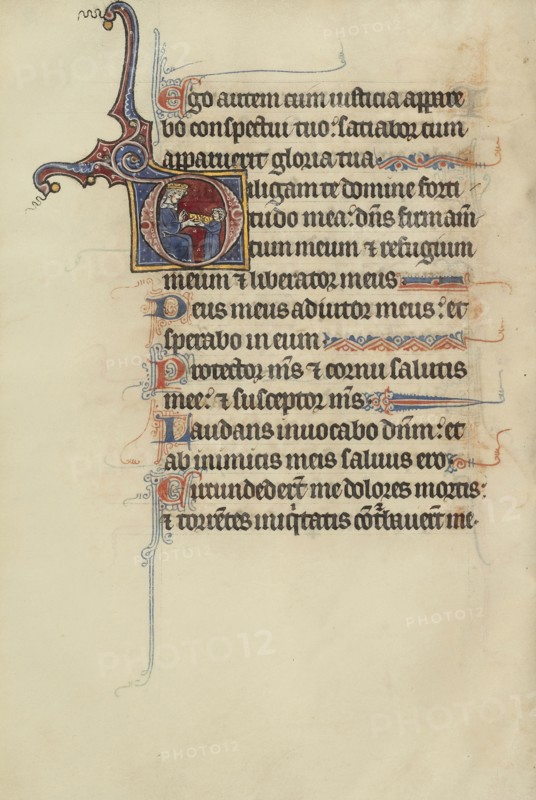 Ego autem cum iusticia appare
bo conspectui tuo: satiabor cum
apparuerit gloria tua
Diligam te domine forti
tudo mea: dñs firmam̃
tum meum ⁊ refugium
meum ⁊ liberator meus
Deus meus adiutor meus: et
sperabo in eum
Protector m̃s ⁊ cornu salutis
mee: ⁊ susceptor m̃s
Laudans inuocabo dñm: et
ab inimicis meis saluus ero
Circundeder̃t me dolores mortis:
⁊ torrẽtes iniq̇tatis cõt̃bauer̃t me.
PHOTO12
PHOTO12
PHOTO12
PHOTO12
PHOTO12
PHOTO12
PHOTO12